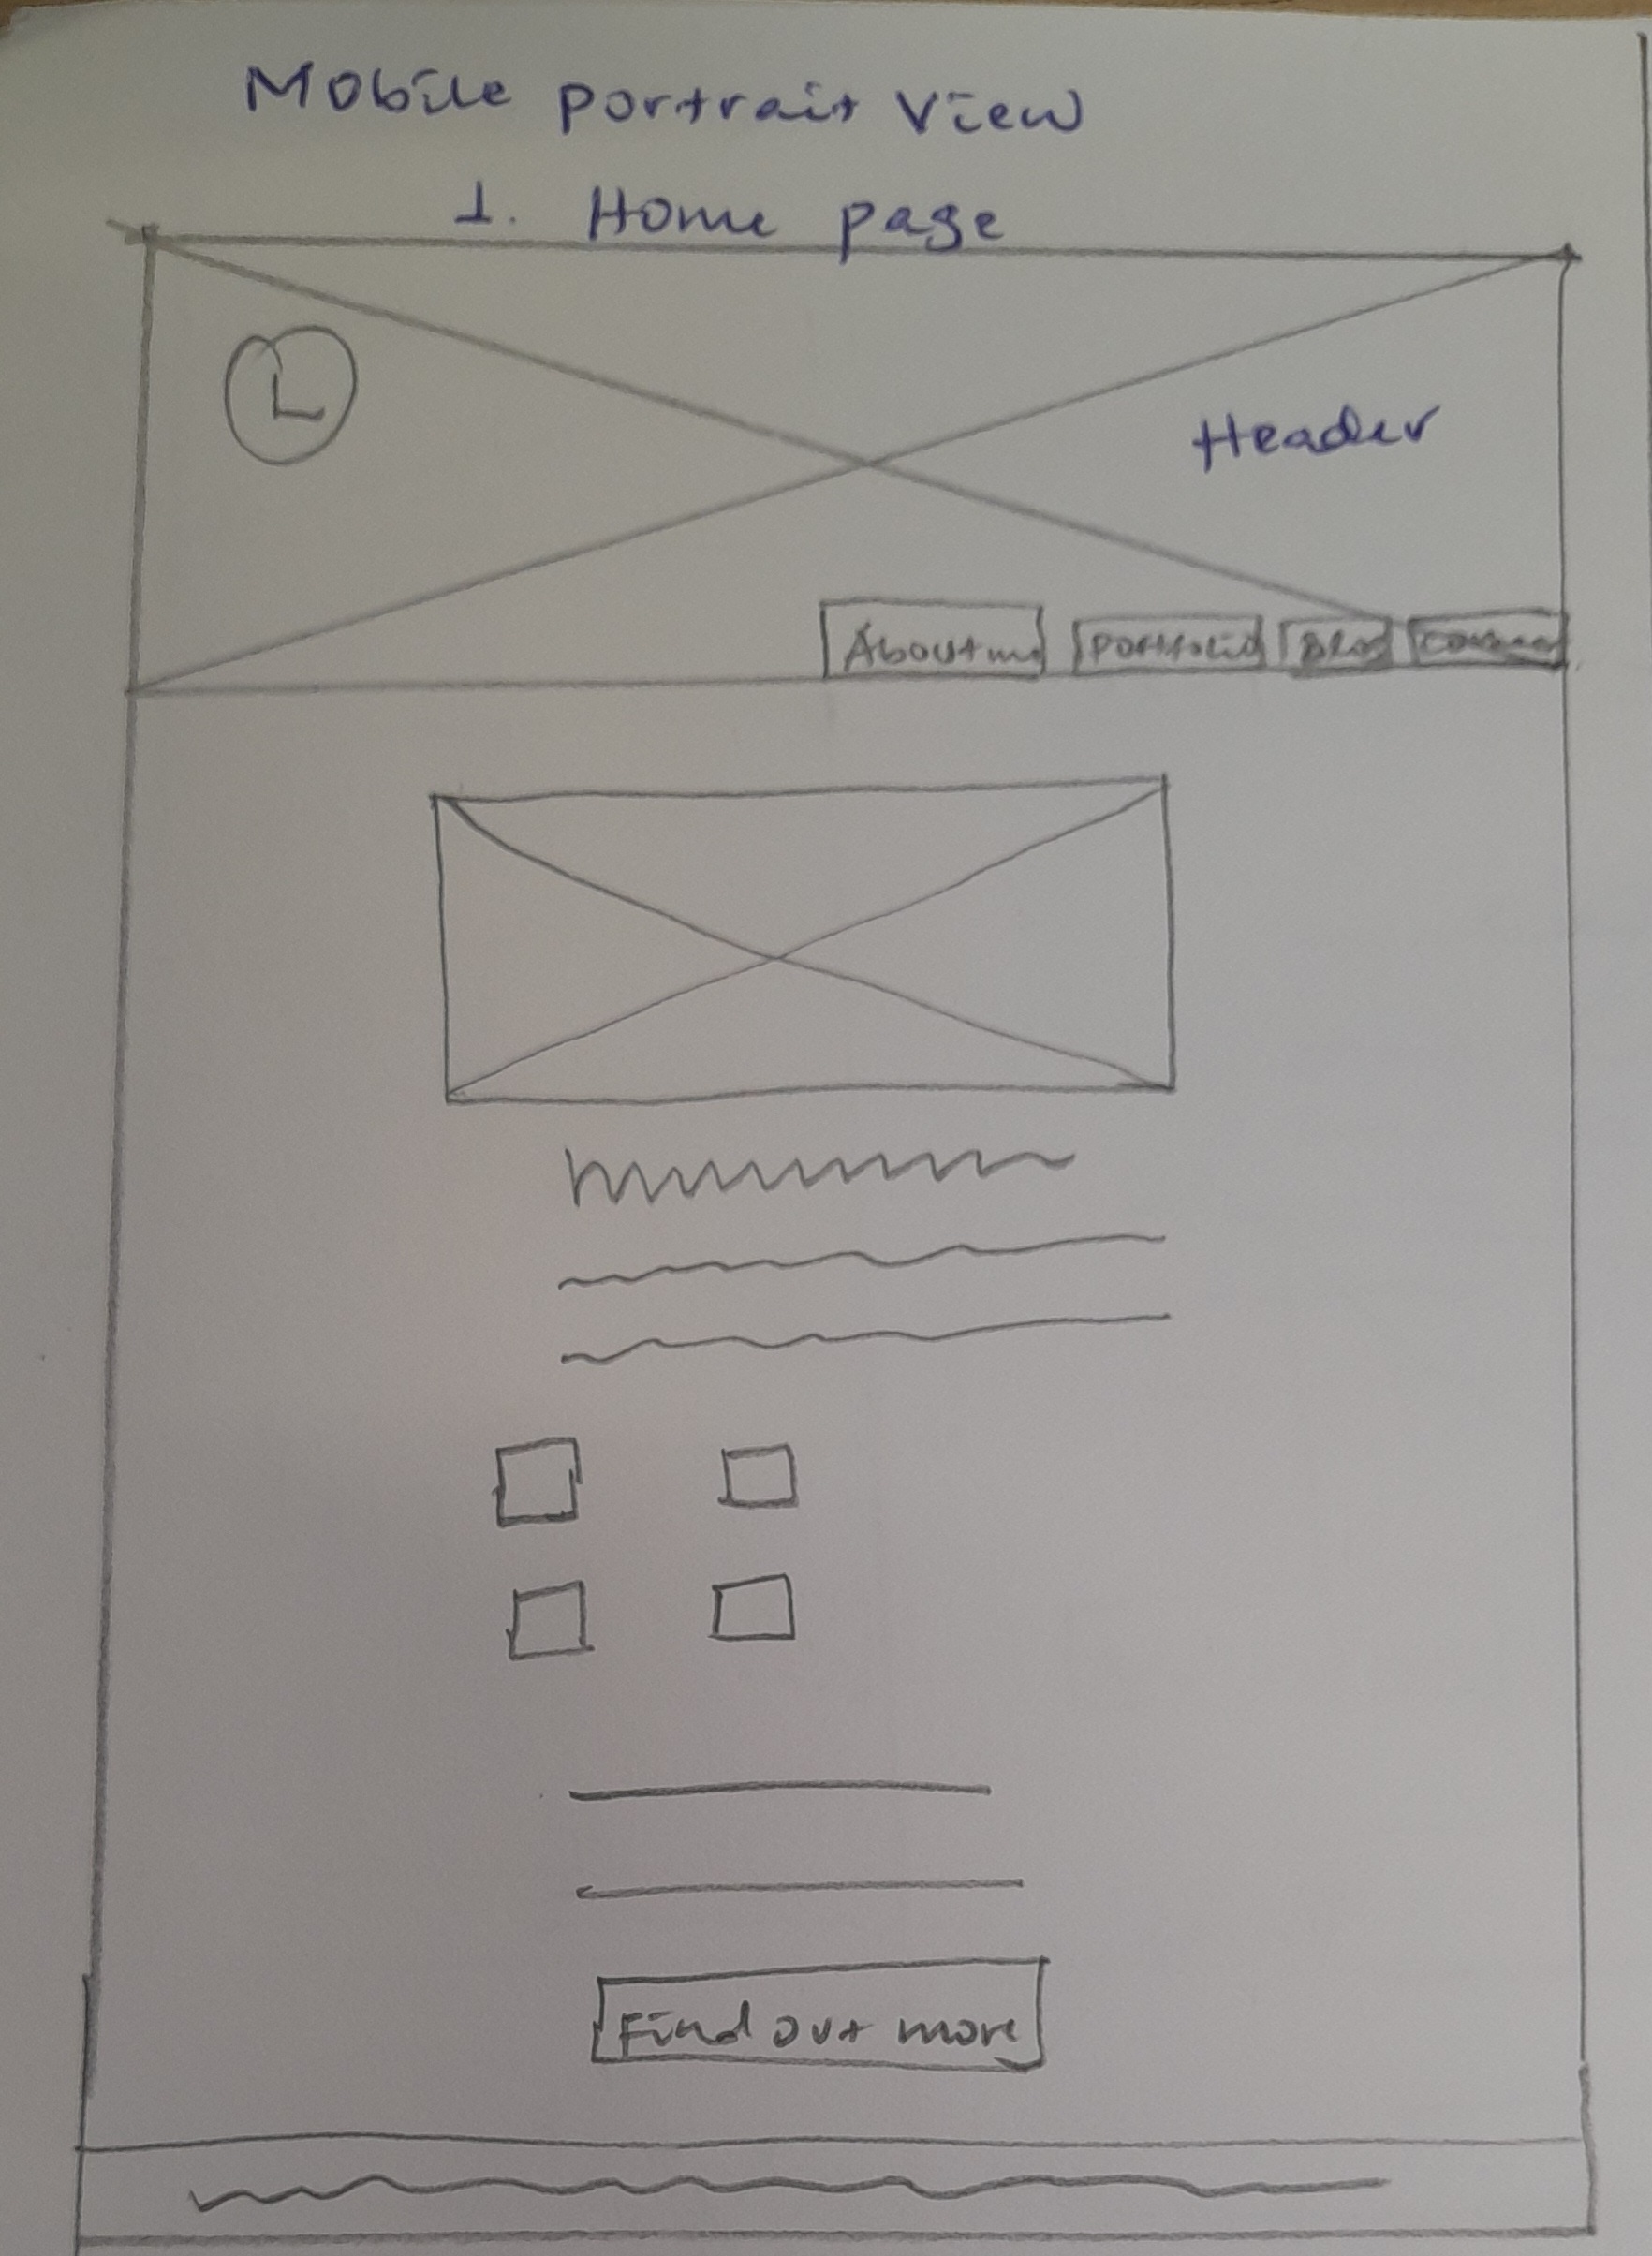 Mobile portrait View
1. Home page
L
Header
About me Portfolio Blog
Find out more